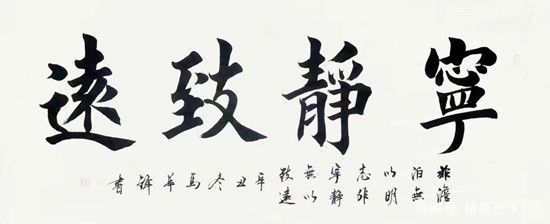 寧靜致遠
非澹泊無以明志非寧靜無以致遠辛丑冬馬書
艺术123